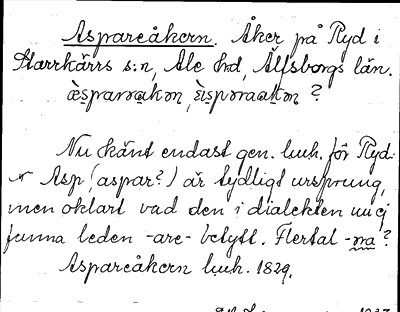 Aspareåkern. Åker på Ryd i
Starrkärrs s:n, Ale hd, Älfsborgs län.
Nu känt endast gen. luh. för Ryd.
Asp (aspar?) är tydligt ursprung,
men oklart vad den i dialekten nu ej
funna leden -are- betytt. Flertal -na?
Aspareåkern luh. 1829.